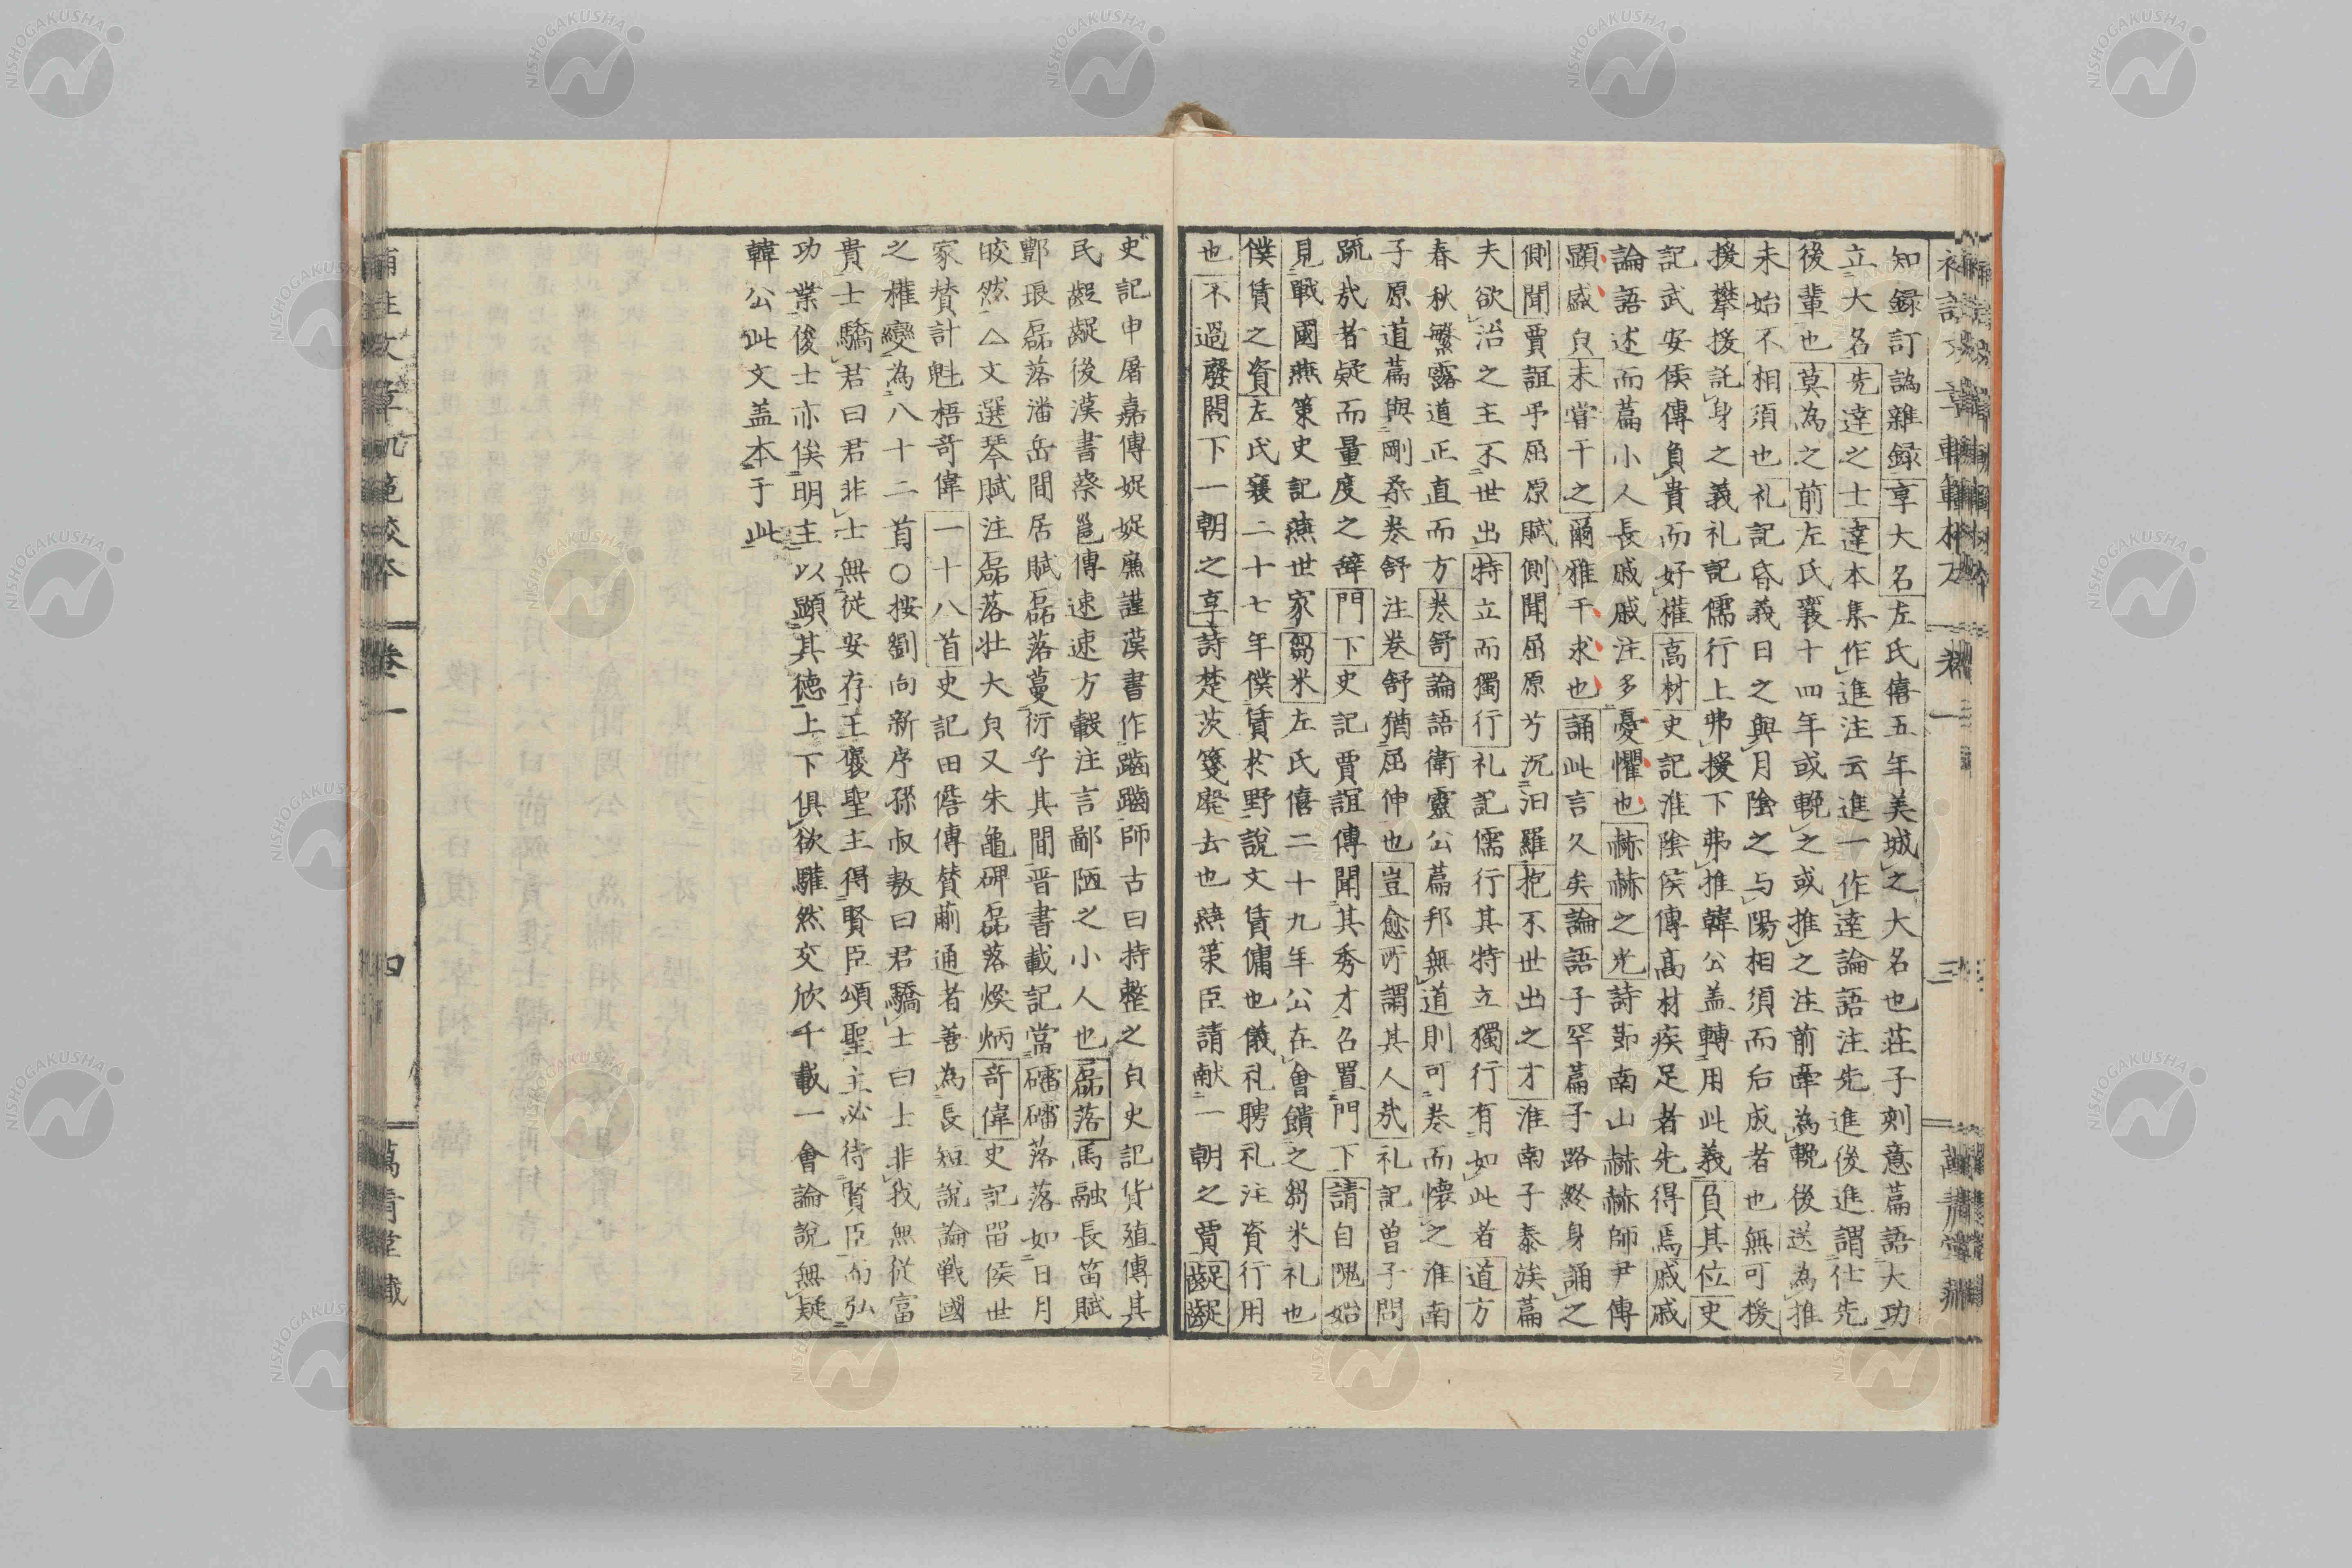 知録訂譌雜録享大名左氏僖五年美城之大名也莊子刻意篇語大功
立大名先達之士達本集作進注云進一作達論語注先進後進謂仕先
後輩也莫為之前左氏襄十四年或輓之或推之注前牽為輓後送為推
未始不相須也礼記昏義日之與月陰之与陽相須而后成者也無可援
援攀援託身之義礼記儒行上弗援下弗推韓公盖轉用此義負其位史
記武安侯傳負貴而好權高材史記淮陰侯傳高材疾足者先得焉戚戚
論語述而篇小人長戚戚注多憂懼也赫赫之光詩節南山赫赫師尹傳
顯盛皃未嘗干之爾雅干求也誦此言久矣論語子罕篇子路終身誦之
側聞賈誼弔屈原賦側聞屈原兮沉汨羅抱不世出之才淮南子泰族篇
夫欲治之主不世出特立而獨行礼記儒行其特立獨行有如此者道方
春秋繁露道正直而方卷舒論語衛靈公篇邦無道則可卷而懷之淮南
子原道篇與剛柔卷舒注卷舒猶屈伸也豈愈所謂其人㢤礼記曽子問
疏㢤者疑而量度之辞門下史記賈誼傳聞其秀才召置門下請自隗始
見戰國燕策史記燕世家芻米左氏僖二十九年公在會饋之芻米礼也
僕賃之資左氏襄二十七年僕賃於野說文賃傭也儀礼聘礼注資行用
也不過廢閣下一朝之享詩楚茨箋廢去也燕策臣請献一朝之賈齪齪
史記申屠嘉傳娖娖廉謹漢書作齱齱師古曰持整之皃史記貨殖傳其
民齪齪後漢書蔡邕傳速速方轂注言鄙陋之小人也磊落馬融長笛賦
酆琅磊落潘岳間居賦磊落蔓衍乎其間晋書載記當礌礌落落如日月
皎然△文選琴賦注磊落壮大皃又朱龜碑磊落煥炳奇偉史記留侯世
家賛計魁梧奇偉一十八首史記田儋傳賛蒯通者善為長短說論戦國
之權變為八十二首○按劉向新序孫叔敖曰君驕士曰士非我無從富
貴士驕君曰君非士無從安存王褒聖主得賢臣頌聖主必待賢臣而弘
功業俊士亦俟明主以顯其徳上下俱欲驩然交欣千載一會論說無疑
韓公此文盖本于此
卷一
四